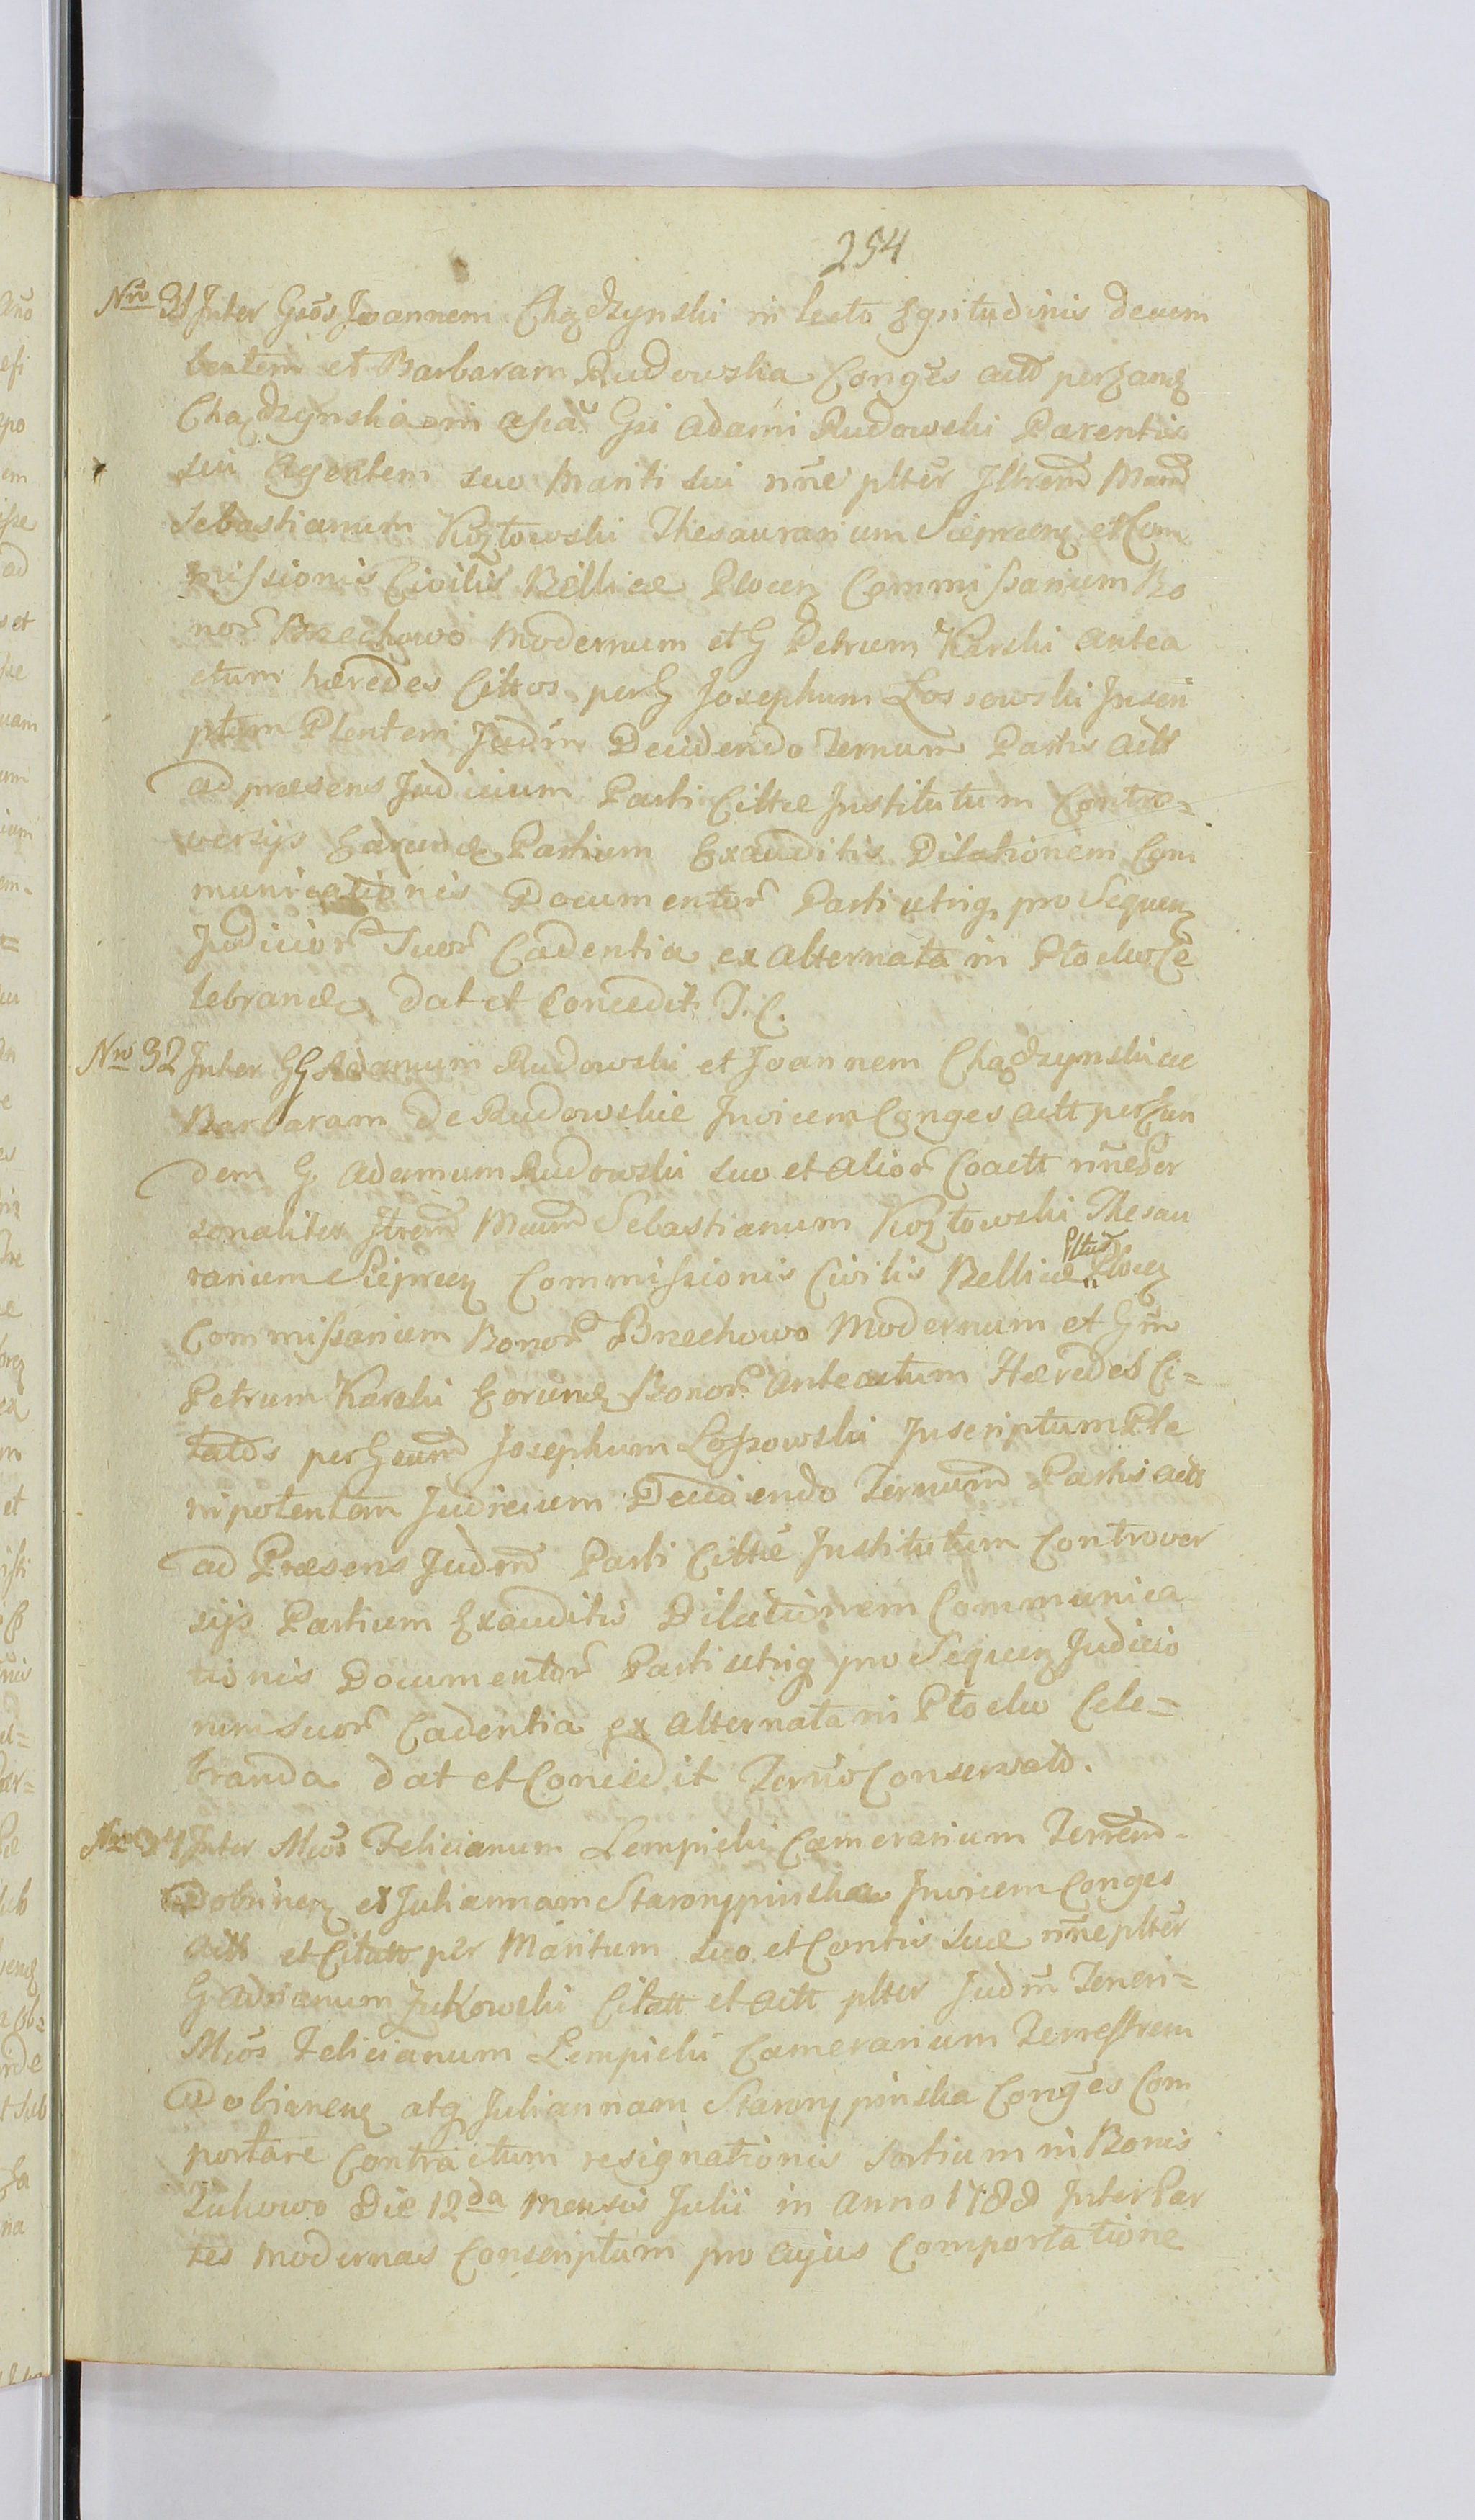 254
Nro 31 Inter Gsos Joannem Chądzynski in lecto Egritudinis decum
bentem et Barbaram Rudowska Conges actt per eand
Chądzynska in assã Gsi Adami Rudowski Parentis
sui Agentem suo Mariti sui nñe plter Iltrem Mam
Sebastianum Kozłowski Thesaurarium Sieprcen et Com
missionis Civilis Bellicæ Plocen Commissarium Bo
nor Brzechowo Modernum et G Petrum Karski antea
ctum hæredes Cittos per G Josephum Lossowski Inscri
ptum Plentem Judm Decidendo Ternum Partis actt
ad præsens Judicium Parti Cittæ Institutum Contro=
versijs Earund Partium Exauditis Dilationem Com
municationis Documentor Parti utriq pro Sequen
Judicior Suor Cadentia ex alternata in Płocku Ce
lebrand dat et Concedit T. C.
Nro 32 Inter GG Adamum Rudowski et Joannem Chądzynski ac
Barbaram de Rudowskie Invicem Conges actt per Eun
dem G Adamum Rudowski suo et alior Coactt nñe Per
sonaliter Iltrem Mam Sebastianum Kozłowski Thesau
rarium Sieprcen Commissionis Civilis Bellicæ Pltus Plocen
Commissarium Bonor Brzechowo Modernum et Gm
Petrum Karski Eorund Bonor Anteactum Hæredes Ci=
tatos per G eund Josephum Lossowski Inscriptum Ple
nipotentem Judicium Decidendo Ternum Partis actt
ad Præsens Judm Parti Cittæ Institutum Controver
sijs Partium Exauditis Dilationem Communica
tionis Documentor Parti utriq pro Sequen Judicio
rum Suor Cadentia ex Alternata in Płocku Cele=
branda dat et Concedit Terño Conservato.
Inter Mcos Felicianum Lempicki Camerarium Terrem
Dobrinen et Juliannam Starorypinska Invicem Conges
actt et Citatt per Maritum suo et Contis suæ nñe plter
G Adrianum Zukowski Citatt et Actt plter Judm Teneri=
Mcos Felicianum Lempicki Camerarium Terrestrem
Dobrinen atq Juliannam Starorypinska Conges Com
portare Contractum resignationis Sortium in Bonis
Zukowo Die 12da Mensis Julii in Anno 1788 Inter Par
tes modernas Conscriptum pro cujus Comportatione